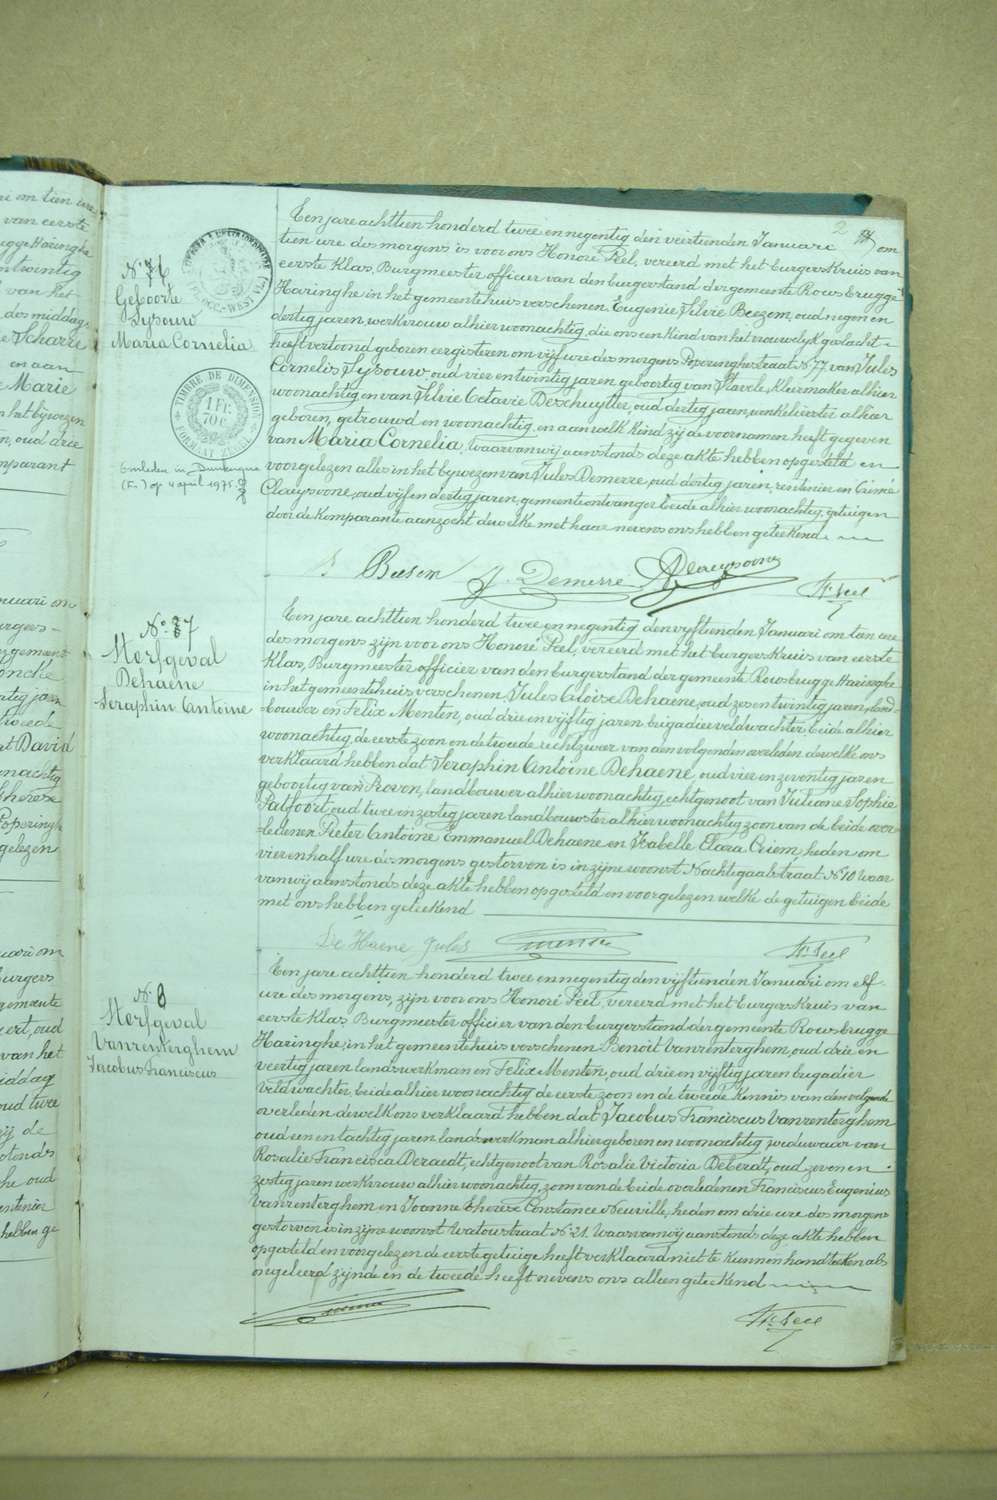 2
Een jare achttien honderd twee en negentig den veertienden Januari om
tien ure des morgens is voor ons Honoré Feel, vereerd met het burgerskruis van
eerste Klas, Burgmeester officier van den burgerstand der gemeente Rousbrugge
Haringhe in het gemeentehuis verschenen Eugenie Silvie Beezem, oud negen en
dertig jaren, werkvrouw alhier woonachtig, die ons een Kind van het vrouwelijk geslacht
heeft vertoond geboren eergisteren om vijf ure des morgens Poperinghestraat No 77 van Jules
Cornelis Lysouw oud vier en twintig jaren geboortig van Stavele, Kleermaker alhier
woonachtig en van Silvie Octavie Deschuytter, oud dertig jaren, winkelierster alhier
geboren, getrouwd en woonachtig, en aan welk kind zij de voornamen heeft gegeven
van Maria Cornelia, Waarvan wij aenstonds deze akte hebben opgesteld en
voorgelezen alles in het bijwezen van Jules Demerre, oud dertig jaren, rentenier en
Claeysoone, oud vijf en dertig jaren, gemeenteontvanger beide alhier woonachtig, getuigen
door de Komparante aanzocht dewelke met haar nevens ons hebben geteekend
No 6
Geboorte
Lysouw
Maria Cornelia
TIMBRE DE DIMENSION
1 FR.
70 C.
Overleden in Dunkerque
(F.) op 4 april 1975.
Beesem J. Demerre Claeysoone H. Feel
No 7
Sterfgeval
Dehaene
Seraphin Antoine
Een jare achttien honderd twee en negentig den vijftienden Januari om tien ure
des morgens zijn voor ons Honoré Feel, vereerd met het burgerskruis van eerste
Klas, Burgmeester officier van den burgerstand der gemeente Rousbrugge Haringhe
in het gemeentehuis verschenen, Jules Aloise Dehaene, oud zes en twintig jaren, land-
bouwer en Felix Menten, oud drie en vijftig jaren brigadier veldwachter, beide alhier
woonachtig, de eerste zoon en de tweede richtzwer van den volgenden overleden dewelke ons
verklaard hebben dat Seraphin Antoine Dehaene, oud vier en zeventig jaren
geboortig van Proven, landbouwer alhier woonachtig, echtgenoot van Juliane Sophie
Palfoort, oud twee in zestig jaren landbouwster alhier woonachtig zoon van de beide over-
ledenen Pieter Antoine Emmanuel Dehaene en Isabelle Clara Criem, heden om
vier en half ure des morgens gestorven is in zijne woonst Nachtegaalstraat No 10 Waar
van wij aenstonds deze akte hebben opgesteld en voorgelezen welke de getuigen beide
met ons hebben geteekend
De Haene Jules Menten H. Feel
No 8
Sterfgeval
Vanrenterghem
Jacobus Franciscus
Een jare achttien honderd twee en negentig den vijftienden Januari om elf
ure des morgens, zijn voor ons Honoré Feel, vereerd met het Burgerskruis van
eerste Klas Burgmeester officier van den burgerstand der gemeente Rousbrugge
Haringhe, in het gemeentehuis verschenen Benoit Vanrenterghem, oud drie en
veertig jaren landswerkman en Felix Menten, oud drie en vijftig jaren brigadier
veldwachter, beide alhier woonachtig de eerste zoon en de tweede Kennis van den volgende
overleden dewelk ons verklaard hebben dat Jacobus Franciscus Vanrenterghem
oud een en tachtig jaren landswerkman alhier geboren en woonachtig weduwaar van
Rosalie Francisca Deraedt, echtgenoot van Rosalie Victoria Deberdt, oud zeven en
zestig jaren werkvrouw alhier woonachtig, zoon van de beide overledenen Franciscus Eugenius
Vanrenterghem en Joanne Therese Constance Neuville, heden om drie ure des morgens
gestorven is in zijne woonst Watoustraat No 21. Waarvan wij aanstonds deze akte hebben
opgesteld en voorgelezen de eerste getuige heeft verklaard niet te kunnen handteeken als
ongeleerd zijnde en de tweede heeft nevens ons alleen geteekend
Menten H. Feel